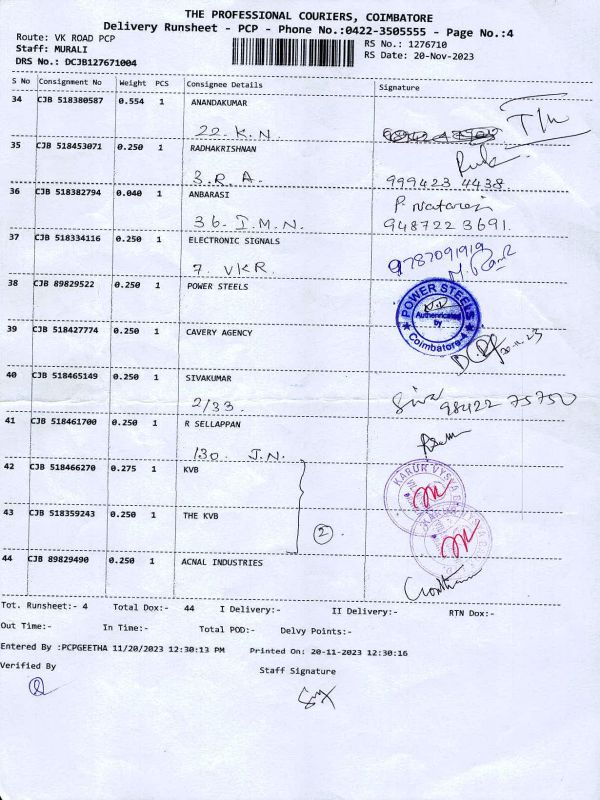 THE PROFESSIONAL COURIERS, COIMBATORE
Delivery Runsheet - PCP - Phone No.:0422-3505555 - Page No.:4
Route: VK ROAD PCP
RS No.: 1276710
Staff: MURALI
RS Date: 20-Nov-2023
DRS No.: DCJB127671004
S No Consignment No Weight PCS Consignee Details Signature
34 CJB 518380587 0.554 1 ANANDAKUMAR
22. K.N.
35 CJB 518453071 0.250 1 RADHAKRISHNAN
3. R. A. 999423 4438
36 CJB 518382794 0.040 1 ANBARASI
P. Nataraj
36. I.M.N. 948722 3691.
37 CJB 518334116 0.250 1 ELECTRONIC SIGNALS
9787091919
7. VKR.
38 CJB 89829522 0.250 1 POWER STEELS
POWER STEELS
Authenticated
by
Coimbatore-4
39 CJB 518427774 0.250 1 CAVERY AGENCY
20.11.23
40 CJB 518465149 0.250 1 SIVAKUMAR
2/33. Siva 98422 75750
41 CJB 518461700 0.250 1 R SELLAPPAN
130. J.N.
42 CJB 518466270 0.275 1 KVB
KARUR VYSYA B
43 CJB 518359243 0.250 1 THE KVB
2
44 CJB 89829490 0.250 1 ACNAL INDUSTRIES
Tot. Runsheet:- 4 Total Dox:- 44 I Delivery:- II Delivery:- RTN Dox:-
Out Time:- In Time:- Total POD:- Delvy Points:-
Entered By :PCPGEETHA 11/20/2023 12:30:13 PM Printed On: 20-11-2023 12:30:16
Verified By
Staff Signature